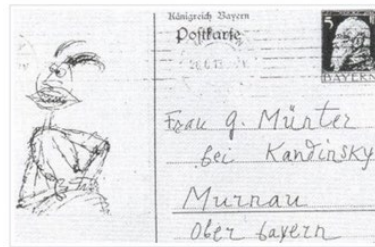 Königreich Bayern
Postkarte
5
BAYERN
Frau G. Münter
bei Kandinsky
Murnau
Ober bayern